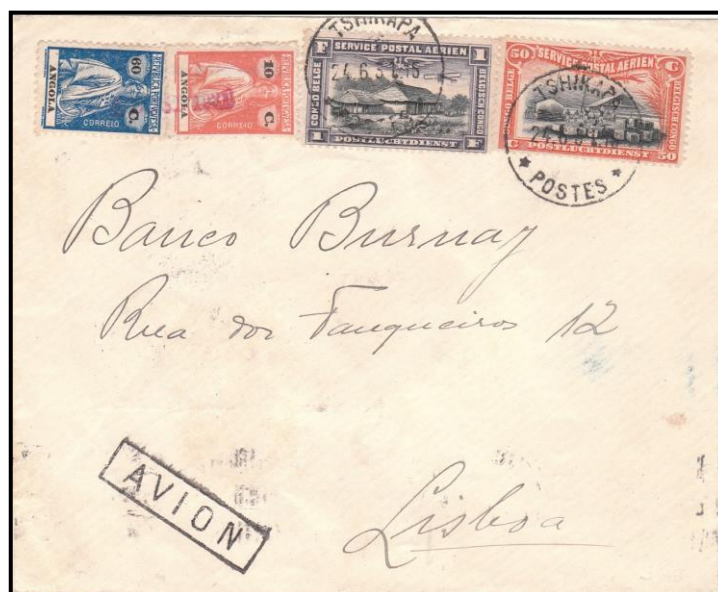 60 C.
ANGOLA
CORREIO
10 C.
ANGOLA
CORREIO
F SERVICE POSTAL AÉRIEN 1
CONGO BELGE
BELGISCH CONGO
1 POSTLUCHTDIENST F
TSHIKAPA
50 SERVICE POSTAL AÉRIEN C
CONGO BELGE
BELGISCH CONGO
C POSTLUCHTDIENST 50
TSHIKAPA
* POSTES *
Banco Burnay
Rua dos Fanqueiros 12
AVION
Lisboa